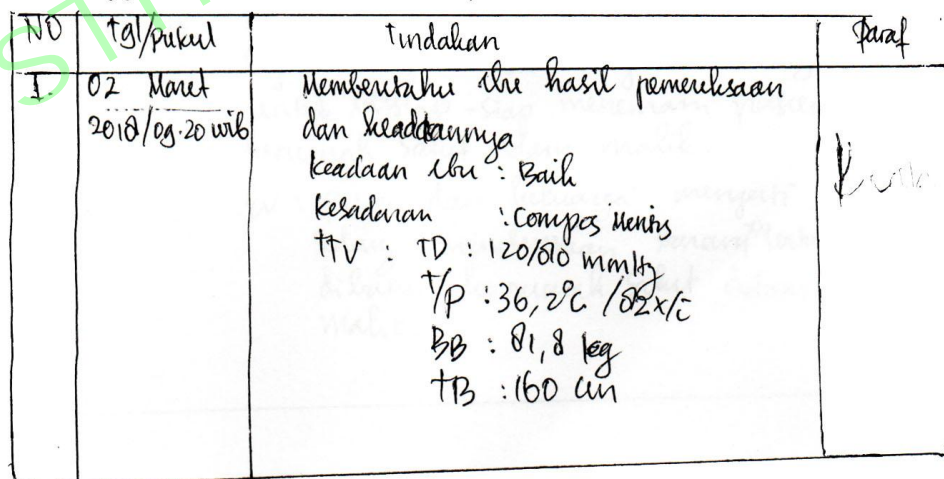 STI
NO tgl/pukul Tindakan Paraf
I. 02 Maret Memberitahu ibu hasil pemeriksaan
2018/09.20 wib dan keaddaannya
keadaan ibu : Baik
kesadaran : Compos Mentis
TTV : TD : 120/80 mmHg
T/P : 36,2°C /82x/i
BB : 81,8 kg
TB : 160 cm